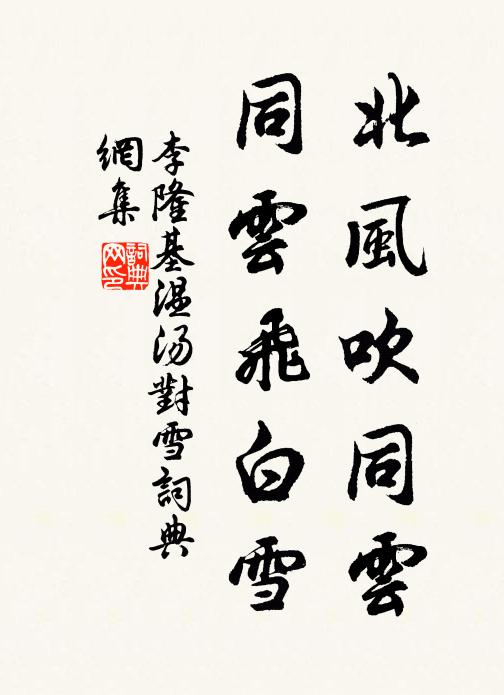 北風吹同雲
同雲飛白雪
李隆基温汤對雪詞典
網集
詞典网印